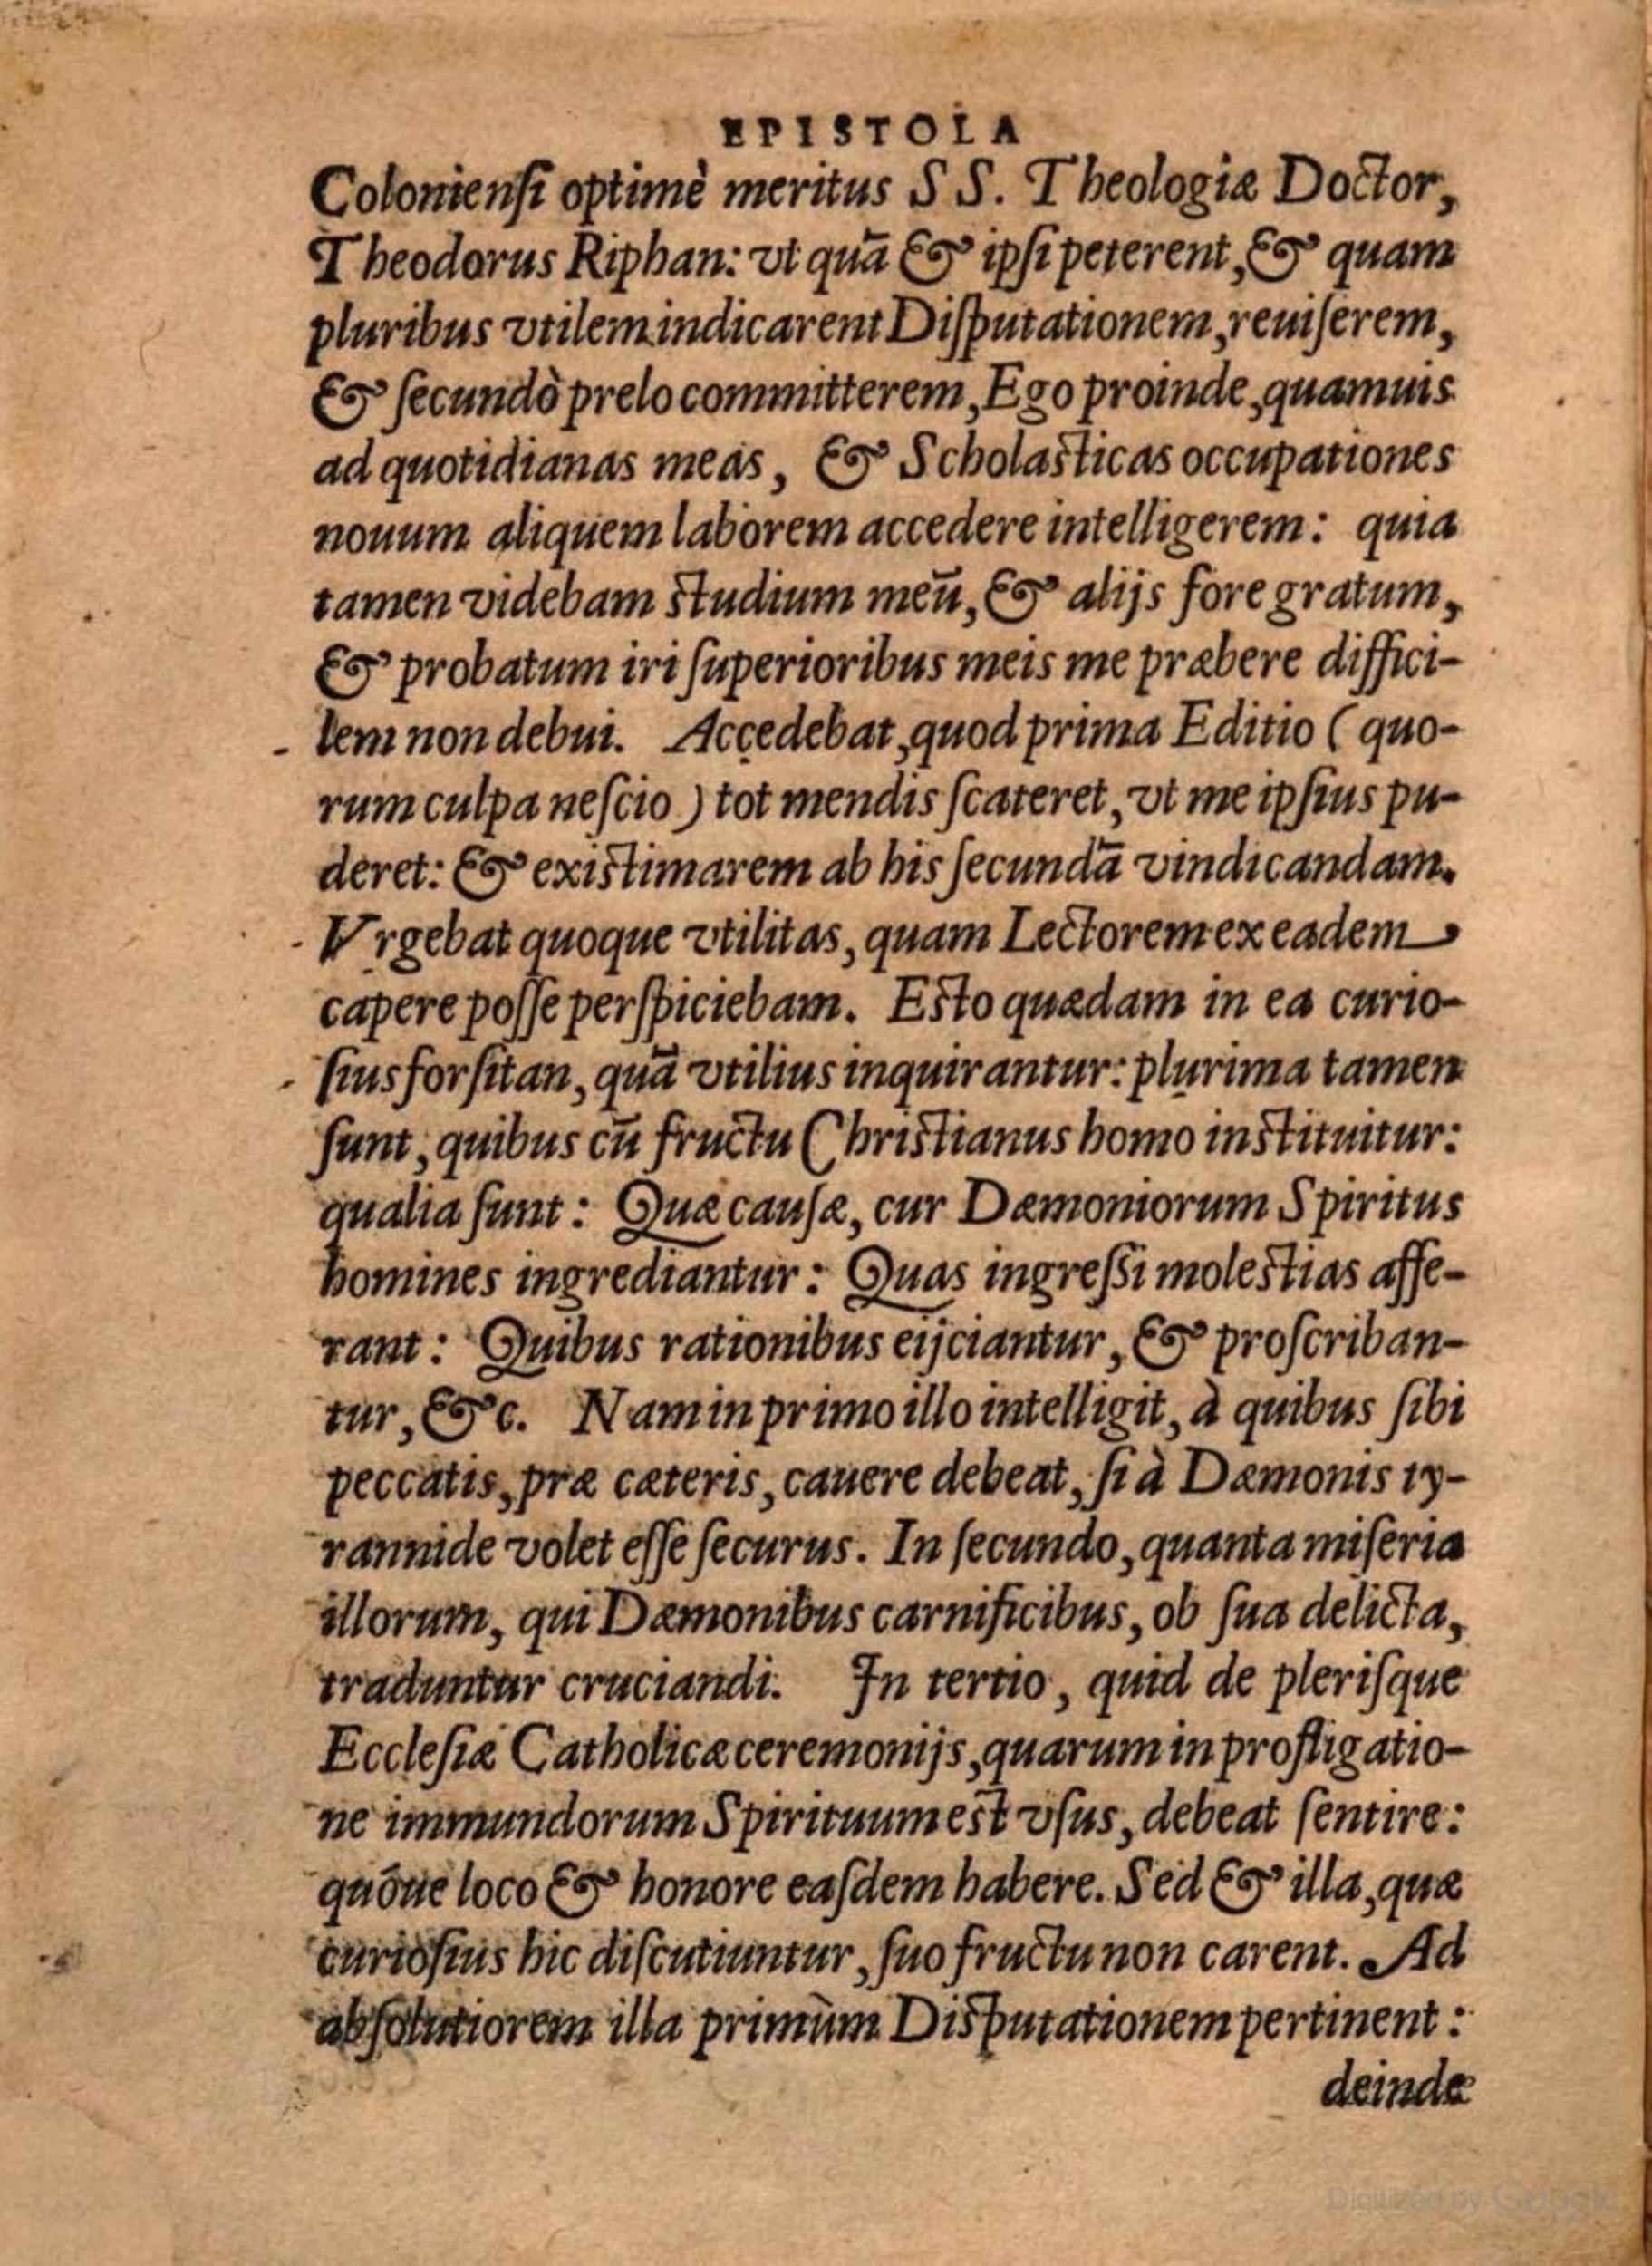 EPISTOLA
Coloniensi optimè meritus SS. Theologiæ Doctor,
Theodorus Riphan: vt quā & ipsi peterent, & quam
pluribus vtilem indicarent Disputationem, reuiserem,
& secundò prelo committerem, Ego proinde, quamuis
ad quotidianas meas, & Scholasticas occupationes
nouum aliquem laborem accedere intelligerem: quia
tamen videbam studium meū, & alijs fore gratum,
& probatum iri superioribus meis me præbere diffici-
lem non debui. Accedebat, quod prima Editio (quo-
rum culpa nescio) tot mendis scateret, vt me ipsius pu-
deret: & existimarem ab his secundā vindicandam.
Vrgebat quoque vtilitas, quam Lectorem ex eadem
capere posse perspiciebam. Esto quædam in ea curio-
sius forsitan, quā vtilius inquirantur: plurima tamen
sunt, quibus cū fructu Christianus homo instituitur:
qualia sunt: Quæ causæ, cur Dæmoniorum Spiritus
homines ingrediantur: Quas ingressi molestias affe-
rant: Quibus rationibus eijciantur, & proscriban-
tur, &c. Nam in primo illo intelligit, à quibus sibi
peccatis, præ cæteris, cauere debeat, si à Dæmonis ty-
rannide volet esse securus. In secundo, quanta miseria
illorum, qui Dæmonibus carnificibus, ob sua delicta,
traduntur cruciandi. In tertio, quid de plerisque
Ecclesiæ Catholicæ ceremonijs, quarum in profligatio-
ne immundorum Spirituum est vsus, debeat sentire:
quōue loco & honore easdem habere. Sed & illa, quæ
curiosius hic discutiuntur, suo fructu non carent. Ad
absolutiorem illa primùm Disputationem pertinent:
deinde
Digitized by Google